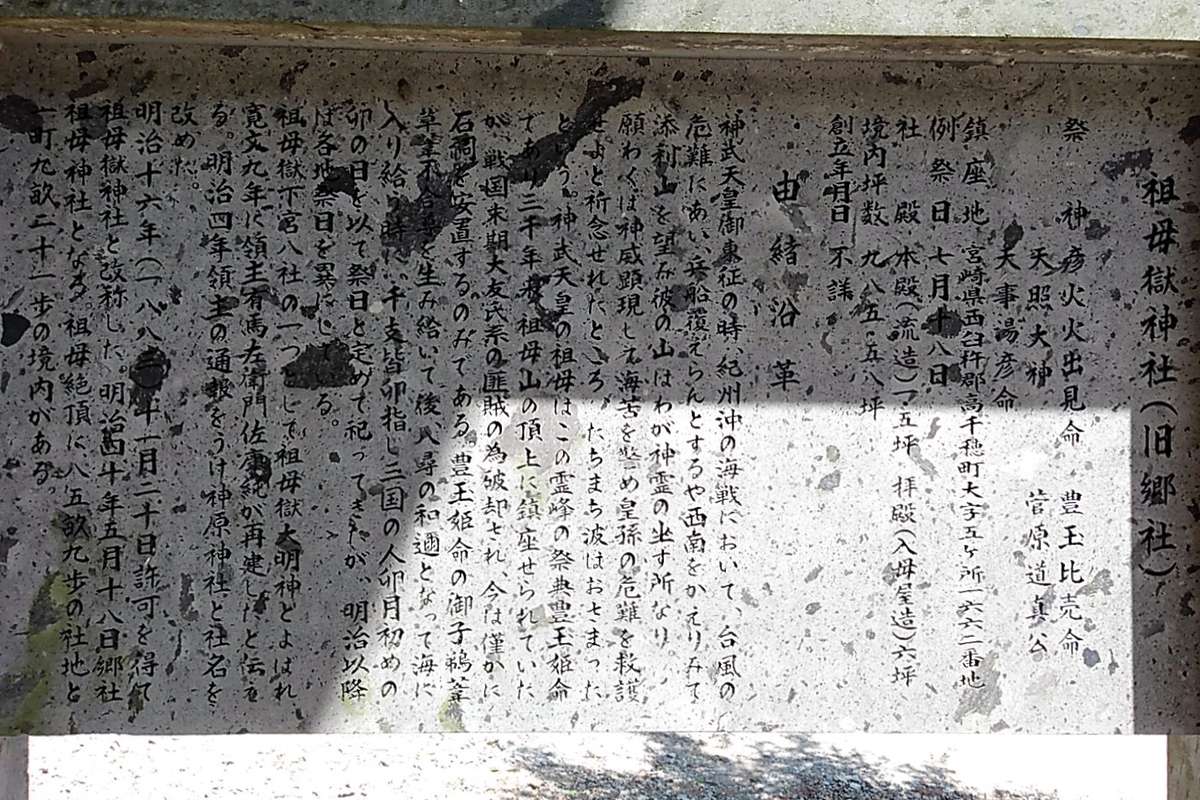 祖母嶽神社(旧郷社)
祭神 彦火火出見命 豊玉比売命
天照大神 菅原道真公
天事湯彦命
鎮座地 宮崎県西臼杵郡高千穂町大字五ヶ所一六六二番地
例祭日 七月十八日
社殿 本殿(流造)一五坪 拝殿(入母屋造)六坪
境内坪数 九八五・五八坪
創立年月日 不詳
由緒沿革
神武天皇御東征の時 紀州沖の海戦において、台風の
危難にあい、兵船覆えらんとするや西南をかえりみて
添利山を望み彼の山はわが神霊の坐す所なり
願わくは神威顕現して海苦を鎮め皇孫の危難を救護
せよと祈念せれたところ、たちまち波はおさまった
という。神武天皇の祖母はこの霊峰の祭典豊玉姫命
であり三千年 祖母山の頂上に鎮座せられていた
が、戦国末期大友氏系の匪賊の為破却され、今は僅かに
石祠を安置するのみである。豊玉姫命の御子鵜葺
草葺不合尊を生み給いて後、八尋の和邇となって海に
入り給う時に、干支皆卯指し三国の人卯月初めの
卯の日を以て祭日と定めて祀ってきたが、明治以降
は各地祭日を異にしている。
祖母嶽下宮八社の一つとして祖母嶽大明神とよばれ
寛文九年に領主有馬左衛門佐康純が再建したと伝え
る。明治四年領主の通報をうけ神原神社と社名を
改めた。
明治十六年(一八八三)年十一月二十日許可を得て
祖母嶽神社と改称した。明治四十年五月十八日郷社
祖母神社となる。祖母絶頂に八五畝九歩の社地と
一町九畝二十一歩の境内がある。